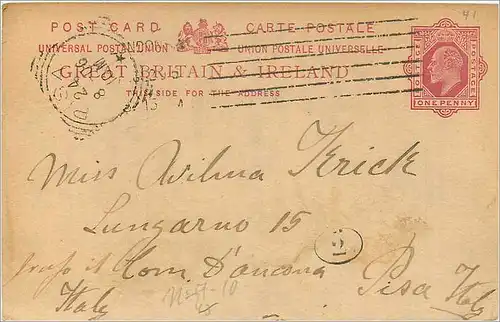 41
POST CARD CARTE POSTALE
UNIVERSAL POSTAL UNION UNION POSTALE UNIVERSELLE
GREAT BRITAIN & IRELAND
THIS SIDE FOR THE ADDRESS
POSTAGE POSTAGE
ONE PENNY
Miss Wilma Krick
Lungarno 15
presso il Com. D'ancona Pisa Italy
Italy